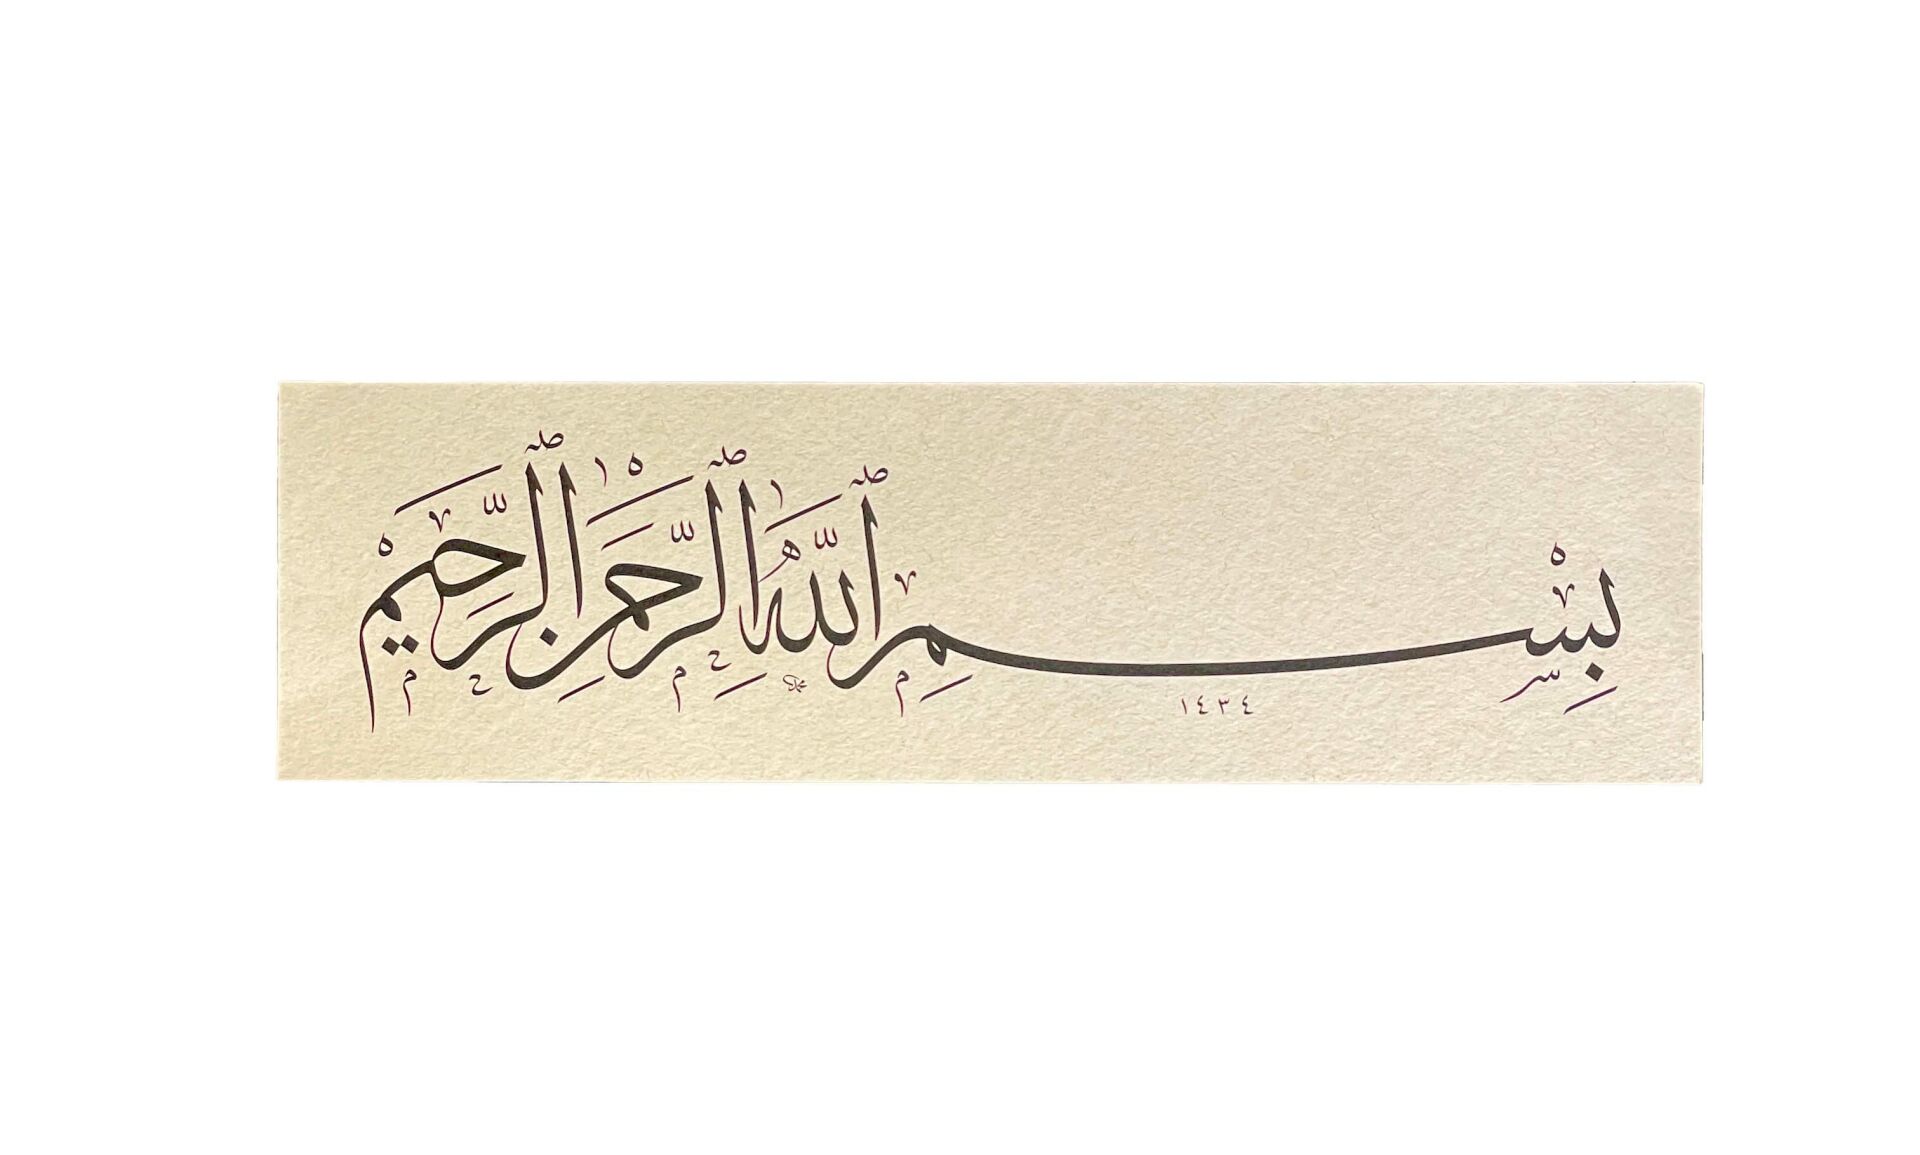 بِسْمِ ٱللَّهِ ٱلرَّحْمَٰنِ ٱلرَّحِيمِ
١٤٣٤